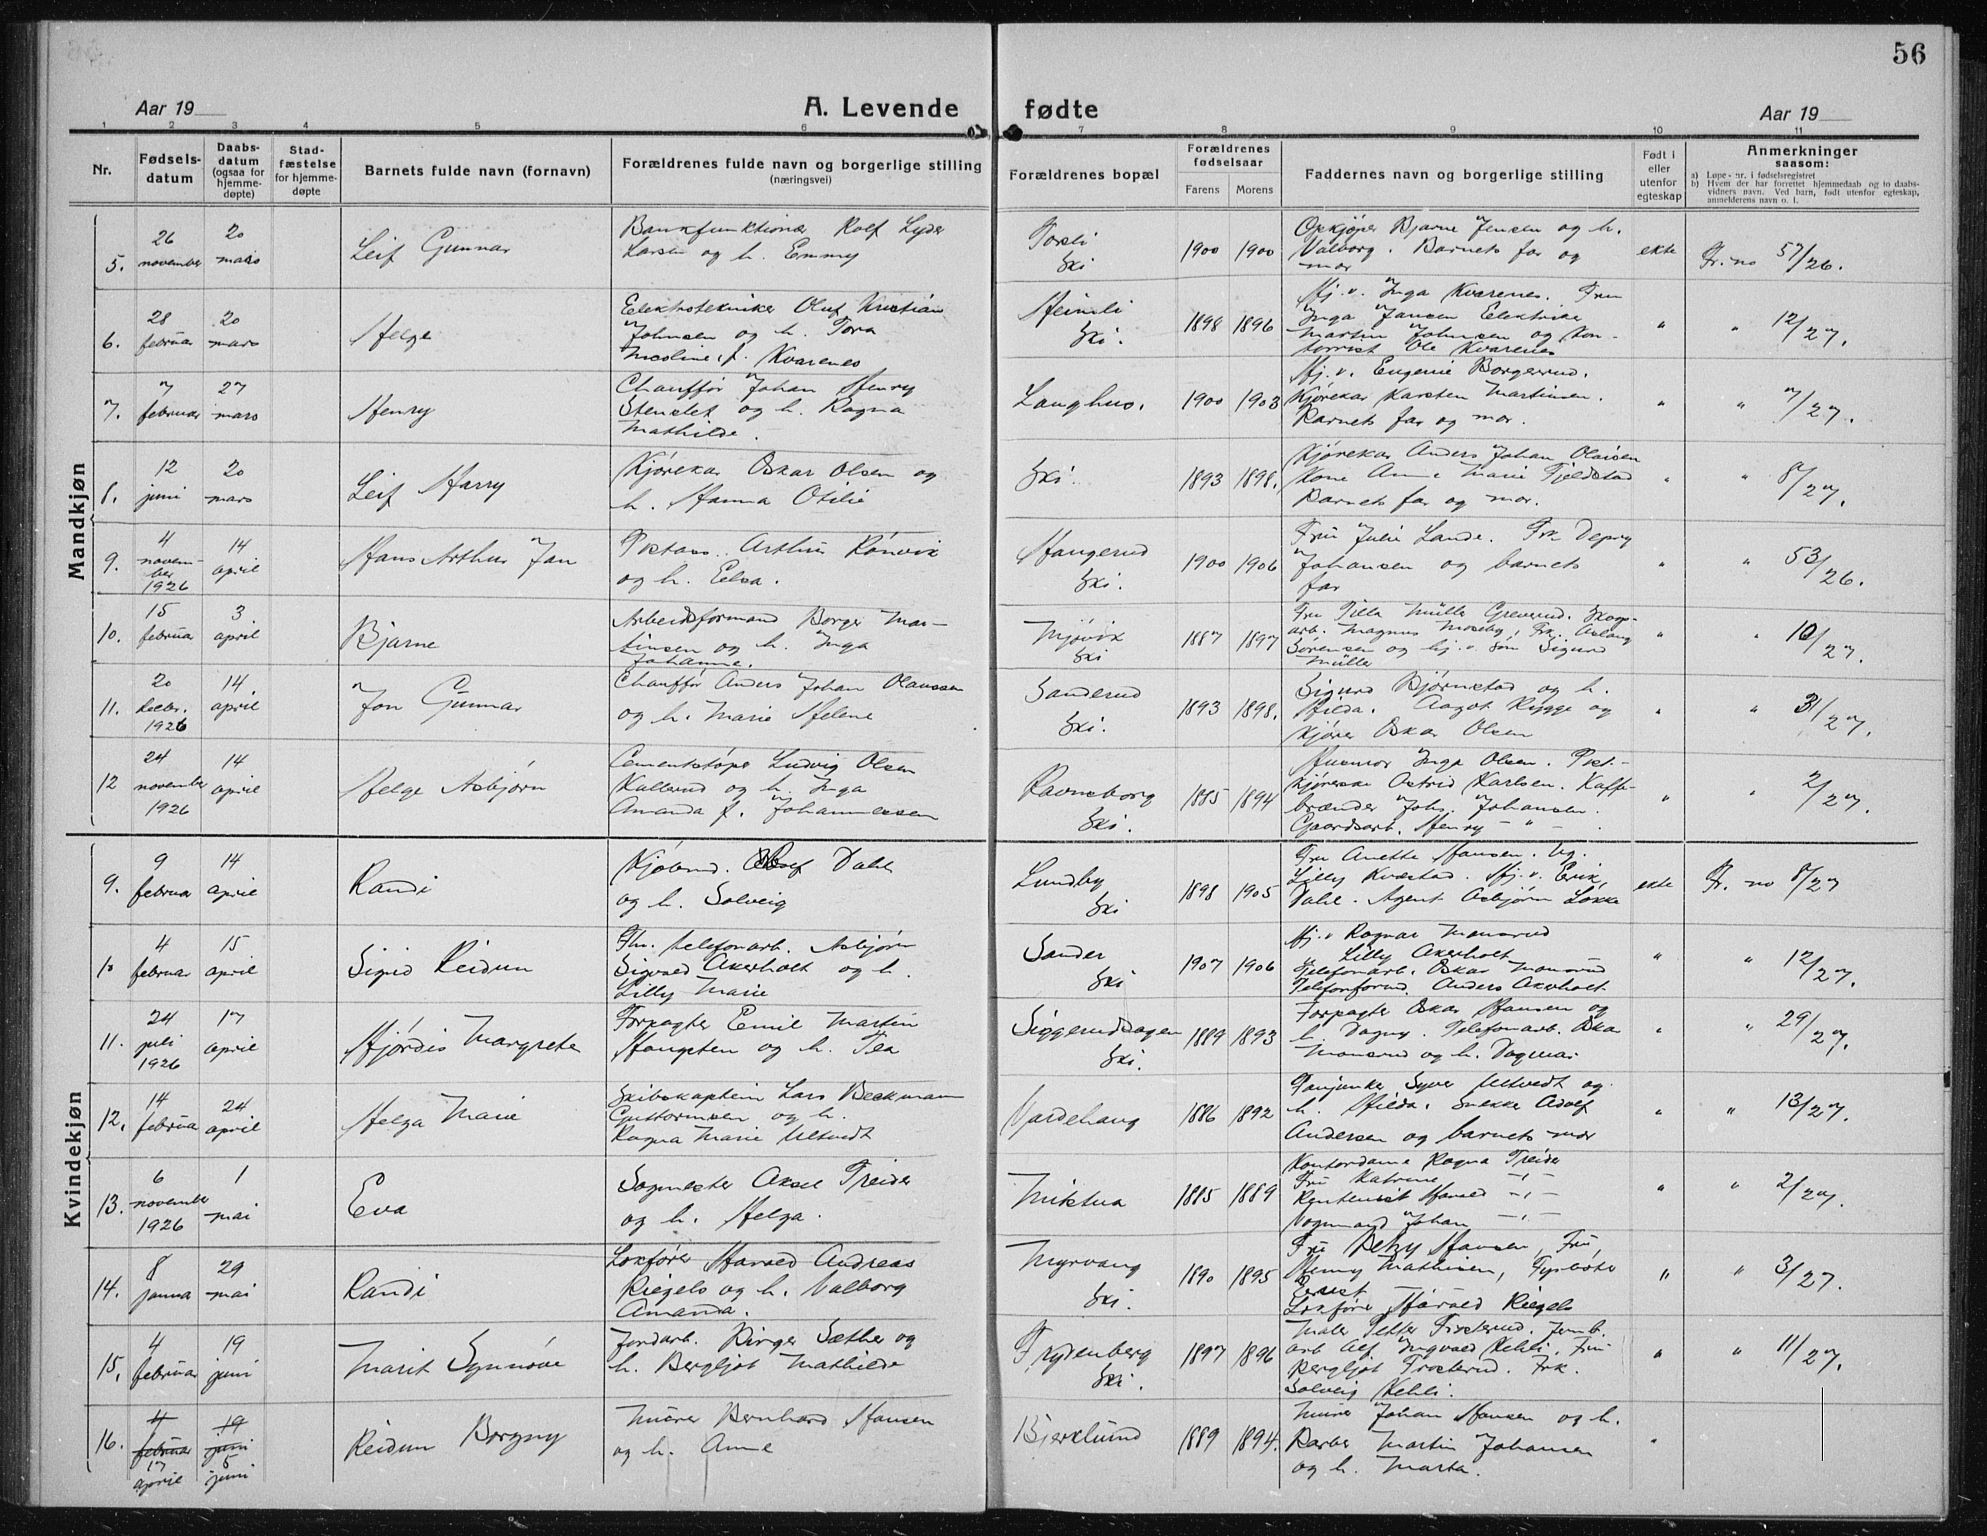 56
Aar 19
A. Levende
fødte
Aar 19
1 2 3 4 5 6 7 8 9 10 11
Nr.
Fødsels-
datum
Daabs-
datum
(ogsaa for
hjemme-
døpte)
Stad-
fæstelse
for hjemme-
døpte
Barnets fulde navn (fornavn)
Forældrenes fulde navn og borgerlige stilling
(næringsvei)
Forældrenes bopæl
Forældrenes
fødselsaar
Farens Morens
Faddernes navn og borgerlige stilling
Født i
eller
utenfor
egteskap
Anmerkninger
saasom:
a) Løpe-nr. i fødselsregistret
b) Hvem der har forrettet hjemmedaab og to daabs-
vidners navn. Ved barn, født utenfor egteskap,
anmelderens navn o. l.
Mandkjøn
5.
26
november
20
mars
Leif Gunnar
Bankfunktionær Rolf Lyder
Larsen og h. Emmy
Torsli
Ski
1900 1900
Opkjøper Bjarne Jensen og h.
Valborg. Barnets far og
mor
ekte
Fr. no 57/26.
6.
28
februar
20
mars
Helge
Elektrotekniker Oluf Kristian
Johnsen og h. Tora
Nicoline, f. Kvarenes
Heimli
Ski.
1898 1896
Hj. v. Inga Kvarenes. Fru
Inga Jansen Elektriker
Martin Johnsen og Kon-
torrist Ole Kvarenes
"
" 12/27.
7.
7
februar
27
mars
Henry
Chauffør Johan Henry
Stenslet og h. Ragna
Mathilde.
Langhus.
1900 1903
Hj. v. Eugenie Borgerud.
Kjørekar Karsten Martinsen.
Barnets far og mor.
"
" 7/27.
8.
12
juni
20
mars
Leif Harry
Kjørekar Oskar Olsen og
h. Hanna Otilie
Ski.
1893 1898.
Kjørekar Anders Johan Olaisen
Kone Anne Marie Fjeldstad
Barnets far og mor.
"
" 8/27.
9.
4
novem-
ber
1926
14
april
Hans Arthur Jan
Postass. Arthur Rønvik
og h. Elsa.
Haugerud
Ski.
1900 1906
Fru Julie Lande. Frk Depvy
Johansen og barnets
far
"
" 53/26.
10.
15
februar
3
april
Bjarne
Arbeidsformand Borger Mar-
tinsen og h. Inga
Johanne.
Mjøvik
Ski
1887 1897
Fru Tilla Müller Greverud. Skogs-
arb. Magnus Moseby, Frk. Aslaug
Sørensen og hj. v. søn Sigurd
Müller
"
" 10/27.
11.
20
decbr.
1926
14.
april
Jon Gunnar
Chauffør Anders Johan Olaussen
og h. Marie Helene
Sanderud
Ski.
1893 1898.
Sigurd Bjørnstad og h.
Hilda. Aagot Rygge og
Kjører Oskar Olsen
"
" 31/27.
12
24
november
1926
14
april
Helge Asbjørn
Cementstøper Ludvig Olsen
Kallerud og h. Inga
Amanda f. Johannessen
Ravnsborg
Ski.
1885 1894
Husmor Inga Olsen. Pst.-
kjørerske Astrid Karlsen. Kaffe-
brænder Johs. Johansen.
Gaardsarb. Henry - " -
"
" 2/27.
Kvindekjøn
9.
9
februar
14
april
Randi
Kjøbmd. Olaf Dahl
og h. Solveig
Lundby
Ski
1898 1905
Fru Anette Hansen. Ug.
Lilly Kvæstad. Hj. v. Erik
Dahl. Agent Asbjørn Løkke
ekte
Fr. no 8/27
10
4
februar
15
april
Sigrid Reidun
Fhv. telefonarb. Asbjørn
Sigvald Akerholt og h.
Lilly Marie
Sander
Ski
1907 1906
Hj. v Ragnar Monsrud
Lilly Akerholt
Telefonarb. Oskar Monsrud
Telefonformd. Anders Akerholt.
"
" 12/27.
11.
24
juli
1926
17
april
Hjørdis Margrete
Forpagter Emil Martin
Haugsten og h. Tea
Siggerudhagen
Ski.
1889 1893
Forpagter Oskar Hansen og
h. Dagny. Telefonarb. Oskar
Monsrud og h. Dagmar
"
" 29/27.
12.
14
februar
24
april
Helga Marie
Skibskaptein Lars Beckmann
Guttormsen og h.
Ragna Marie Ultvedt
Vardehaug
1886 1892
Fanjunker Syver Ultvedt og
h. Hilda. Snekker Adolf
Andersen og barnets mor
"
" 13/27.
13.
6
november
1926
1
mai
Eva
Sagmester Aksel Treider
og h. Helga.
Miktua
1885 1889
Kontordame Ragna Treider
Fru Katrine - " -
Rentenist Harald - " -
Vognmand Johan - " -
"
" 2/27.
14.
8
januar
29
mai
Randi
Lokfører Harald Andreas
Riegels og h. Valborg
Amanda.
Myrvang
Ski.
1890 1895
Fru Betzy Hansen, Fru
Henny Mathisen, Fyrbøter
Ernst
Lokfører Harald Riegels
"
" 3/27.
15.
4
februar
19
juni
Marit Synnøve
Jordarb. Birger Sæther og
h. Bergljot Mathilde
Frydenberg
Ski.
1897 1896
Maler Petter Frosterud. Jernb.
arb Alf Ingvald Kehli. Fru
Bergljot Frosterud. Frk.
Solveig Kehli.
"
" 11/27.
16.
4
februar
17
april
19
juni
5
juni
Reidun Borgny
Murer Bernhard Hansen
og h. Anne
Bjerklund
1889 1894.
Murer Johan Hansen og h.
Barber Martin Johansen
og h. Marta.
"